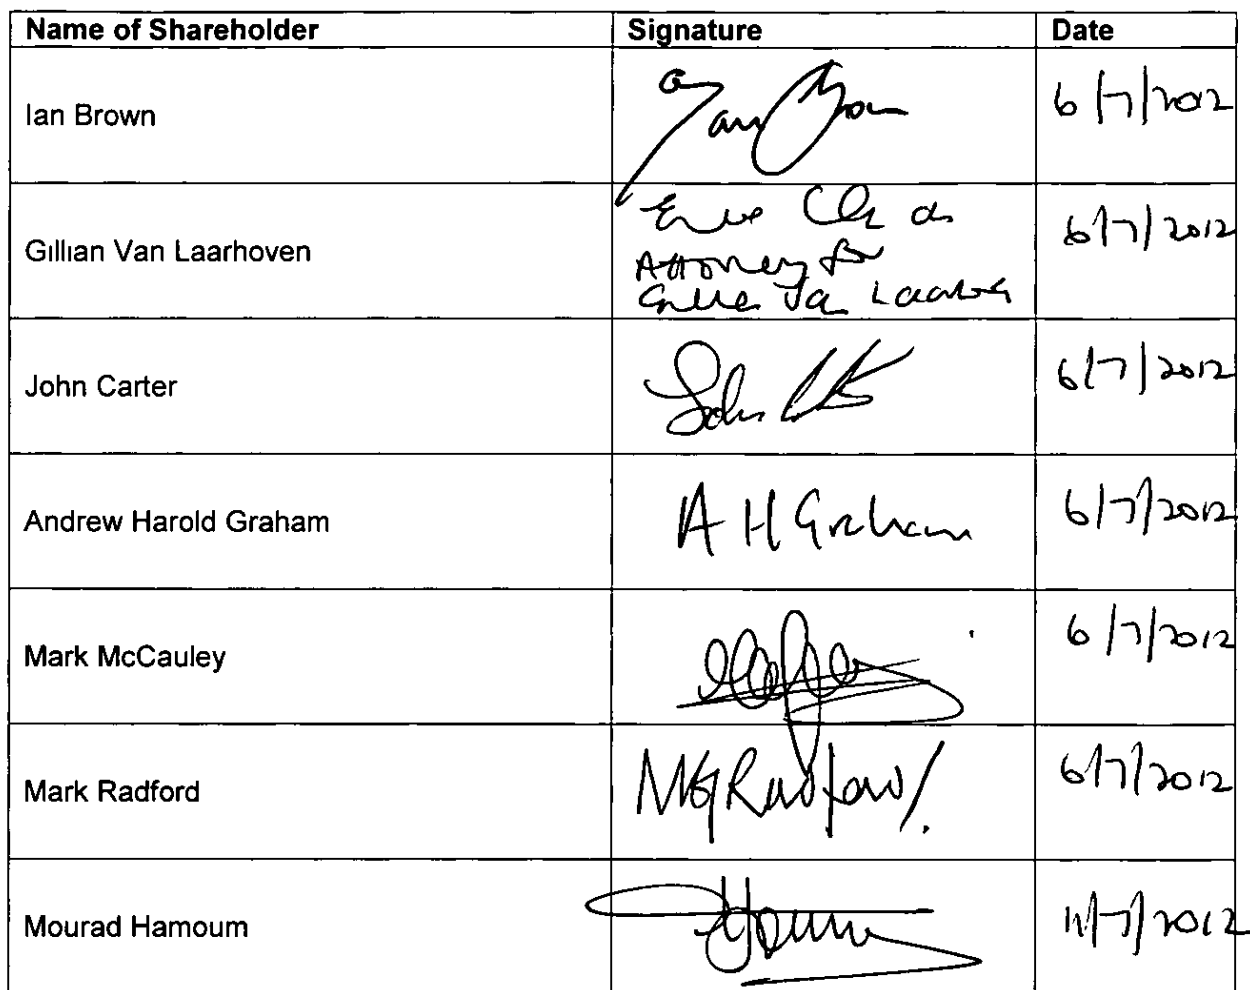 Name of Shareholder Signature Date
Ian Brown Ian Brown 6/7/2012
Gillian Van Laarhoven 6/7/2012
as
Attorney for
Van Laarhoven
John Carter John 6/7/2012
Andrew Harold Graham A H Graham 6/7/2012
Mark McCauley 6/7/2012
Mark Radford Radford 6/7/2012
Mourad Hamoum 11/7/2012